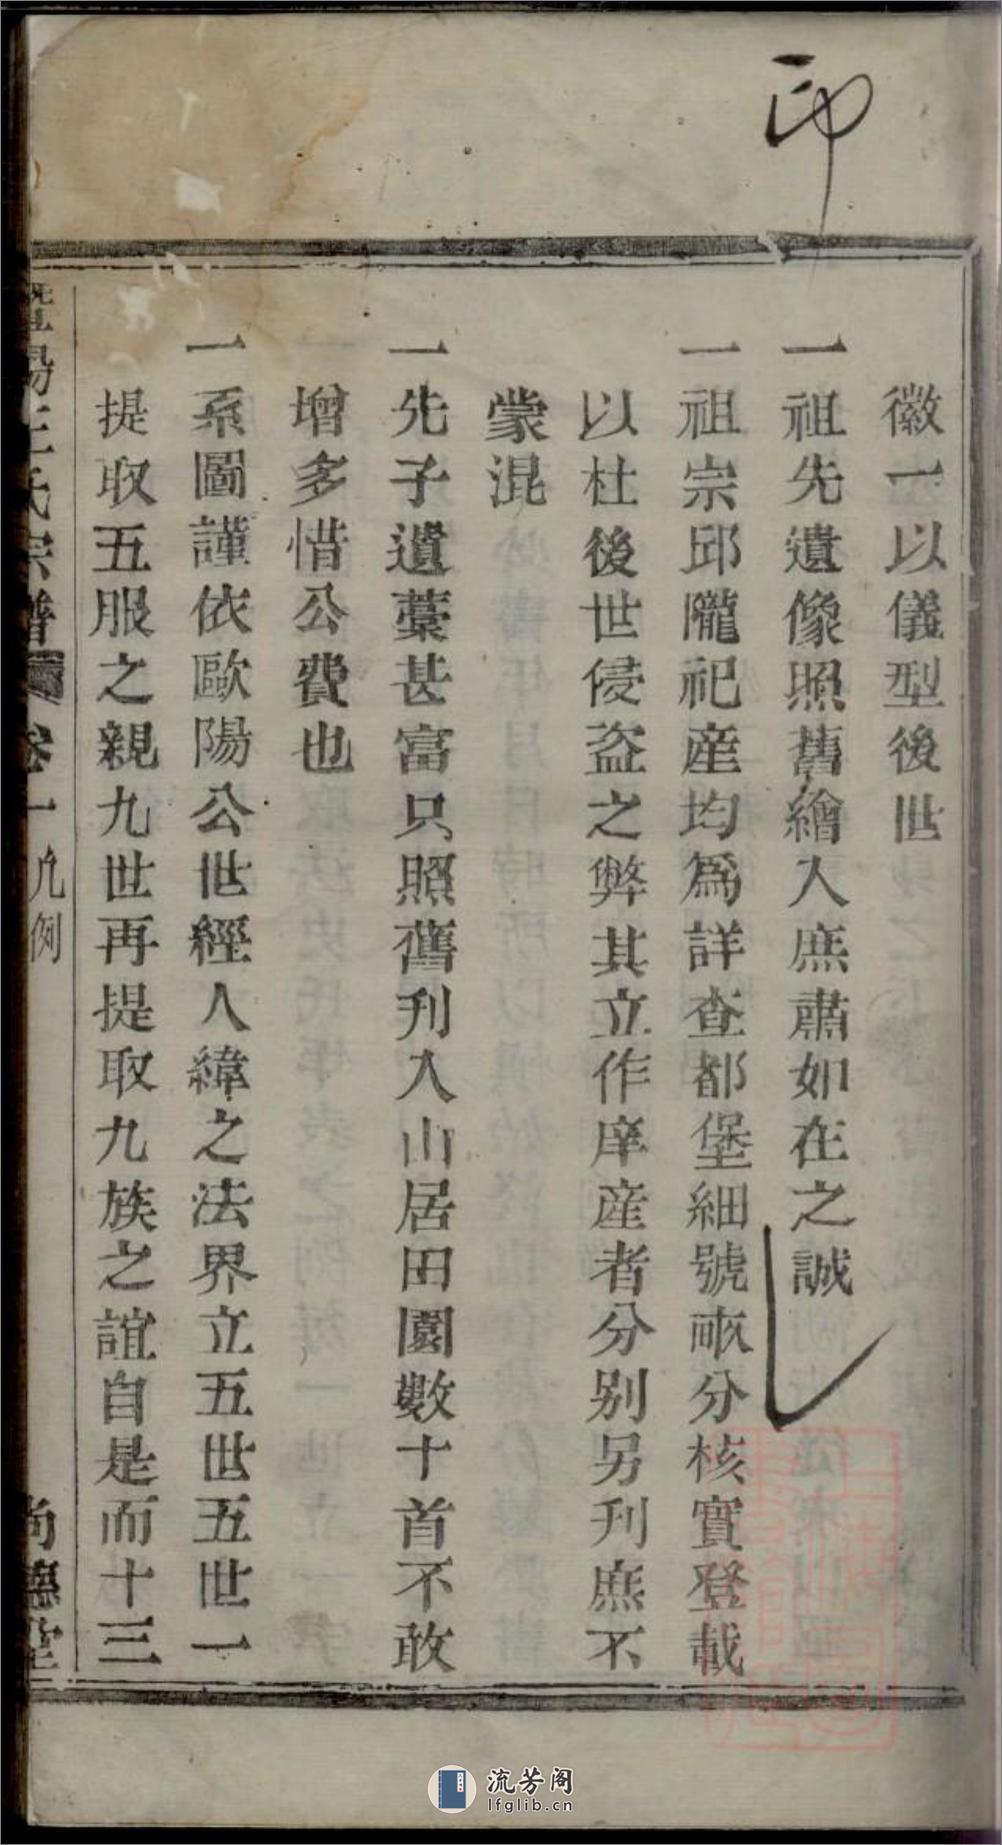 印
徽一以儀型後世
一祖先遺像照舊繪入庶肅如在之誠
一祖宗邱隴祀産均爲詳查都堡細號畝分核實登載
以杜後世侵盜之弊其立作庠産者分别另刊庶不
蒙混
一先子遺藁甚富只照舊刊入山居田園數十首不敢
增多惜公費也
一系圖謹依歐陽公世經人緯之法界立五世五世一
提取五服之親九世再提取九族之誼自是而十三
暨陽王氏宗譜 卷一 凡例 尚德堂
流芳阁
lfglib.cn